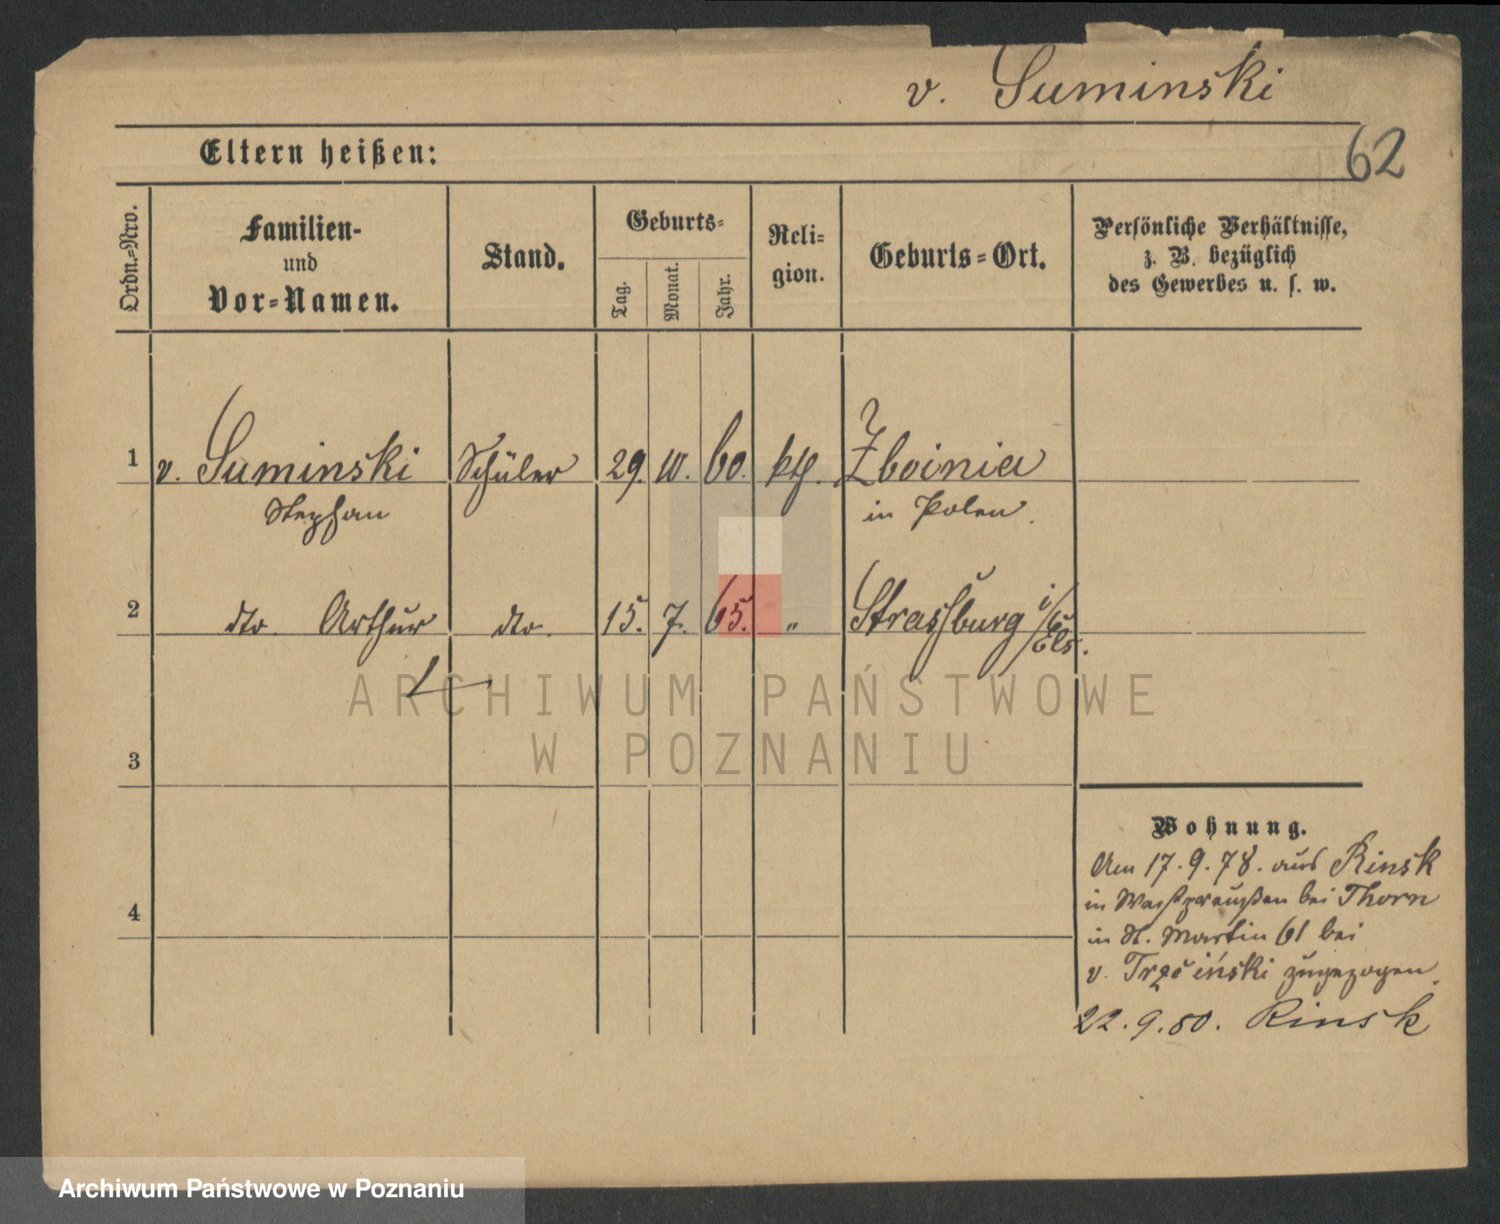 v. Suminski
62
Eltern heißen:
Ordn.-Nro.
Familien-
und
Vor-Namen.
Stand.
Geburts-
Tag.
Monat.
Jahr.
Reli-
gion.
Geburts-Ort.
Persönliche Verhältnisse,
z. B. bezüglich
des Gewerbes u. s. w.
1 v. Suminski Schüler 29. 10. 60. kth. Zboinia
Stephan in Polen.
2 dto. Arthur dto. 15. 7. 65. " Strassburg i/Els.
ARCHIWUM PAŃSTWOWE
W POZNANIU
3
4
Wohnung.
Am 17.9.78. aus Rinsk
in Westpreußen bei Thorn
in St. Martin 61 bei
v. zugezogen.
22.9.80. Rinsk
Archiwum Państwowe w Poznaniu